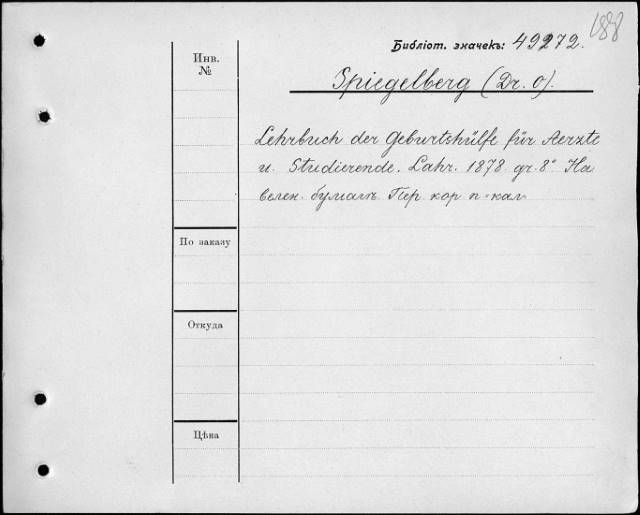 1888
Библіот. значекъ: 49272.
Инв.
№
Spiegelberg (Dr. O).
Lehrbuch der Geburtshülfe für Aerzte
u. Studierende. Lahr. 1878. gr. 8° На
велен. бумагѣ. Пер. кор. п. кал
По заказу
Откуда
Цѣна